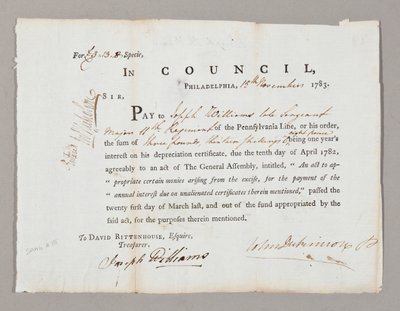 For £3..13..8 Specie,
IN COUNCIL,
PHILADELPHIA, 15th November 1783.
SIR,
PAY to Joseph Williams late Sergeant
Major 4th Regiment of the Pennsylvania Line, or his order,
the sum of three pounds thirteen shillings & eight pence being one year's
interest on his depreciation certificate, due the tenth day of April 1782,
agreeably to an act of The General Assembly, intitled, "An act to ap-
"propriate certain monies arising from the excise, for the payment of the
"annual interest due on unalienated certificates therein mentioned," passed the
twenty first day of March last, and out of the fund appropriated by the
said act, for the purposes therein mentioned.
To DAVID RITTENHOUSE, Esquire,
Treasurer.
Joseph Williams
John Dickinson